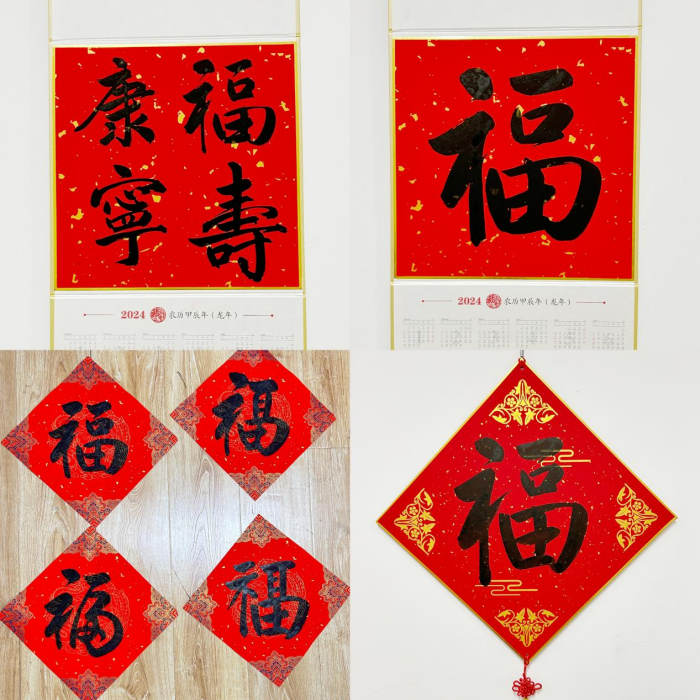 福壽
康寧
2024 农历甲辰年（龙年）
福
2024 农历甲辰年（龙年）
福
福
福
福
福